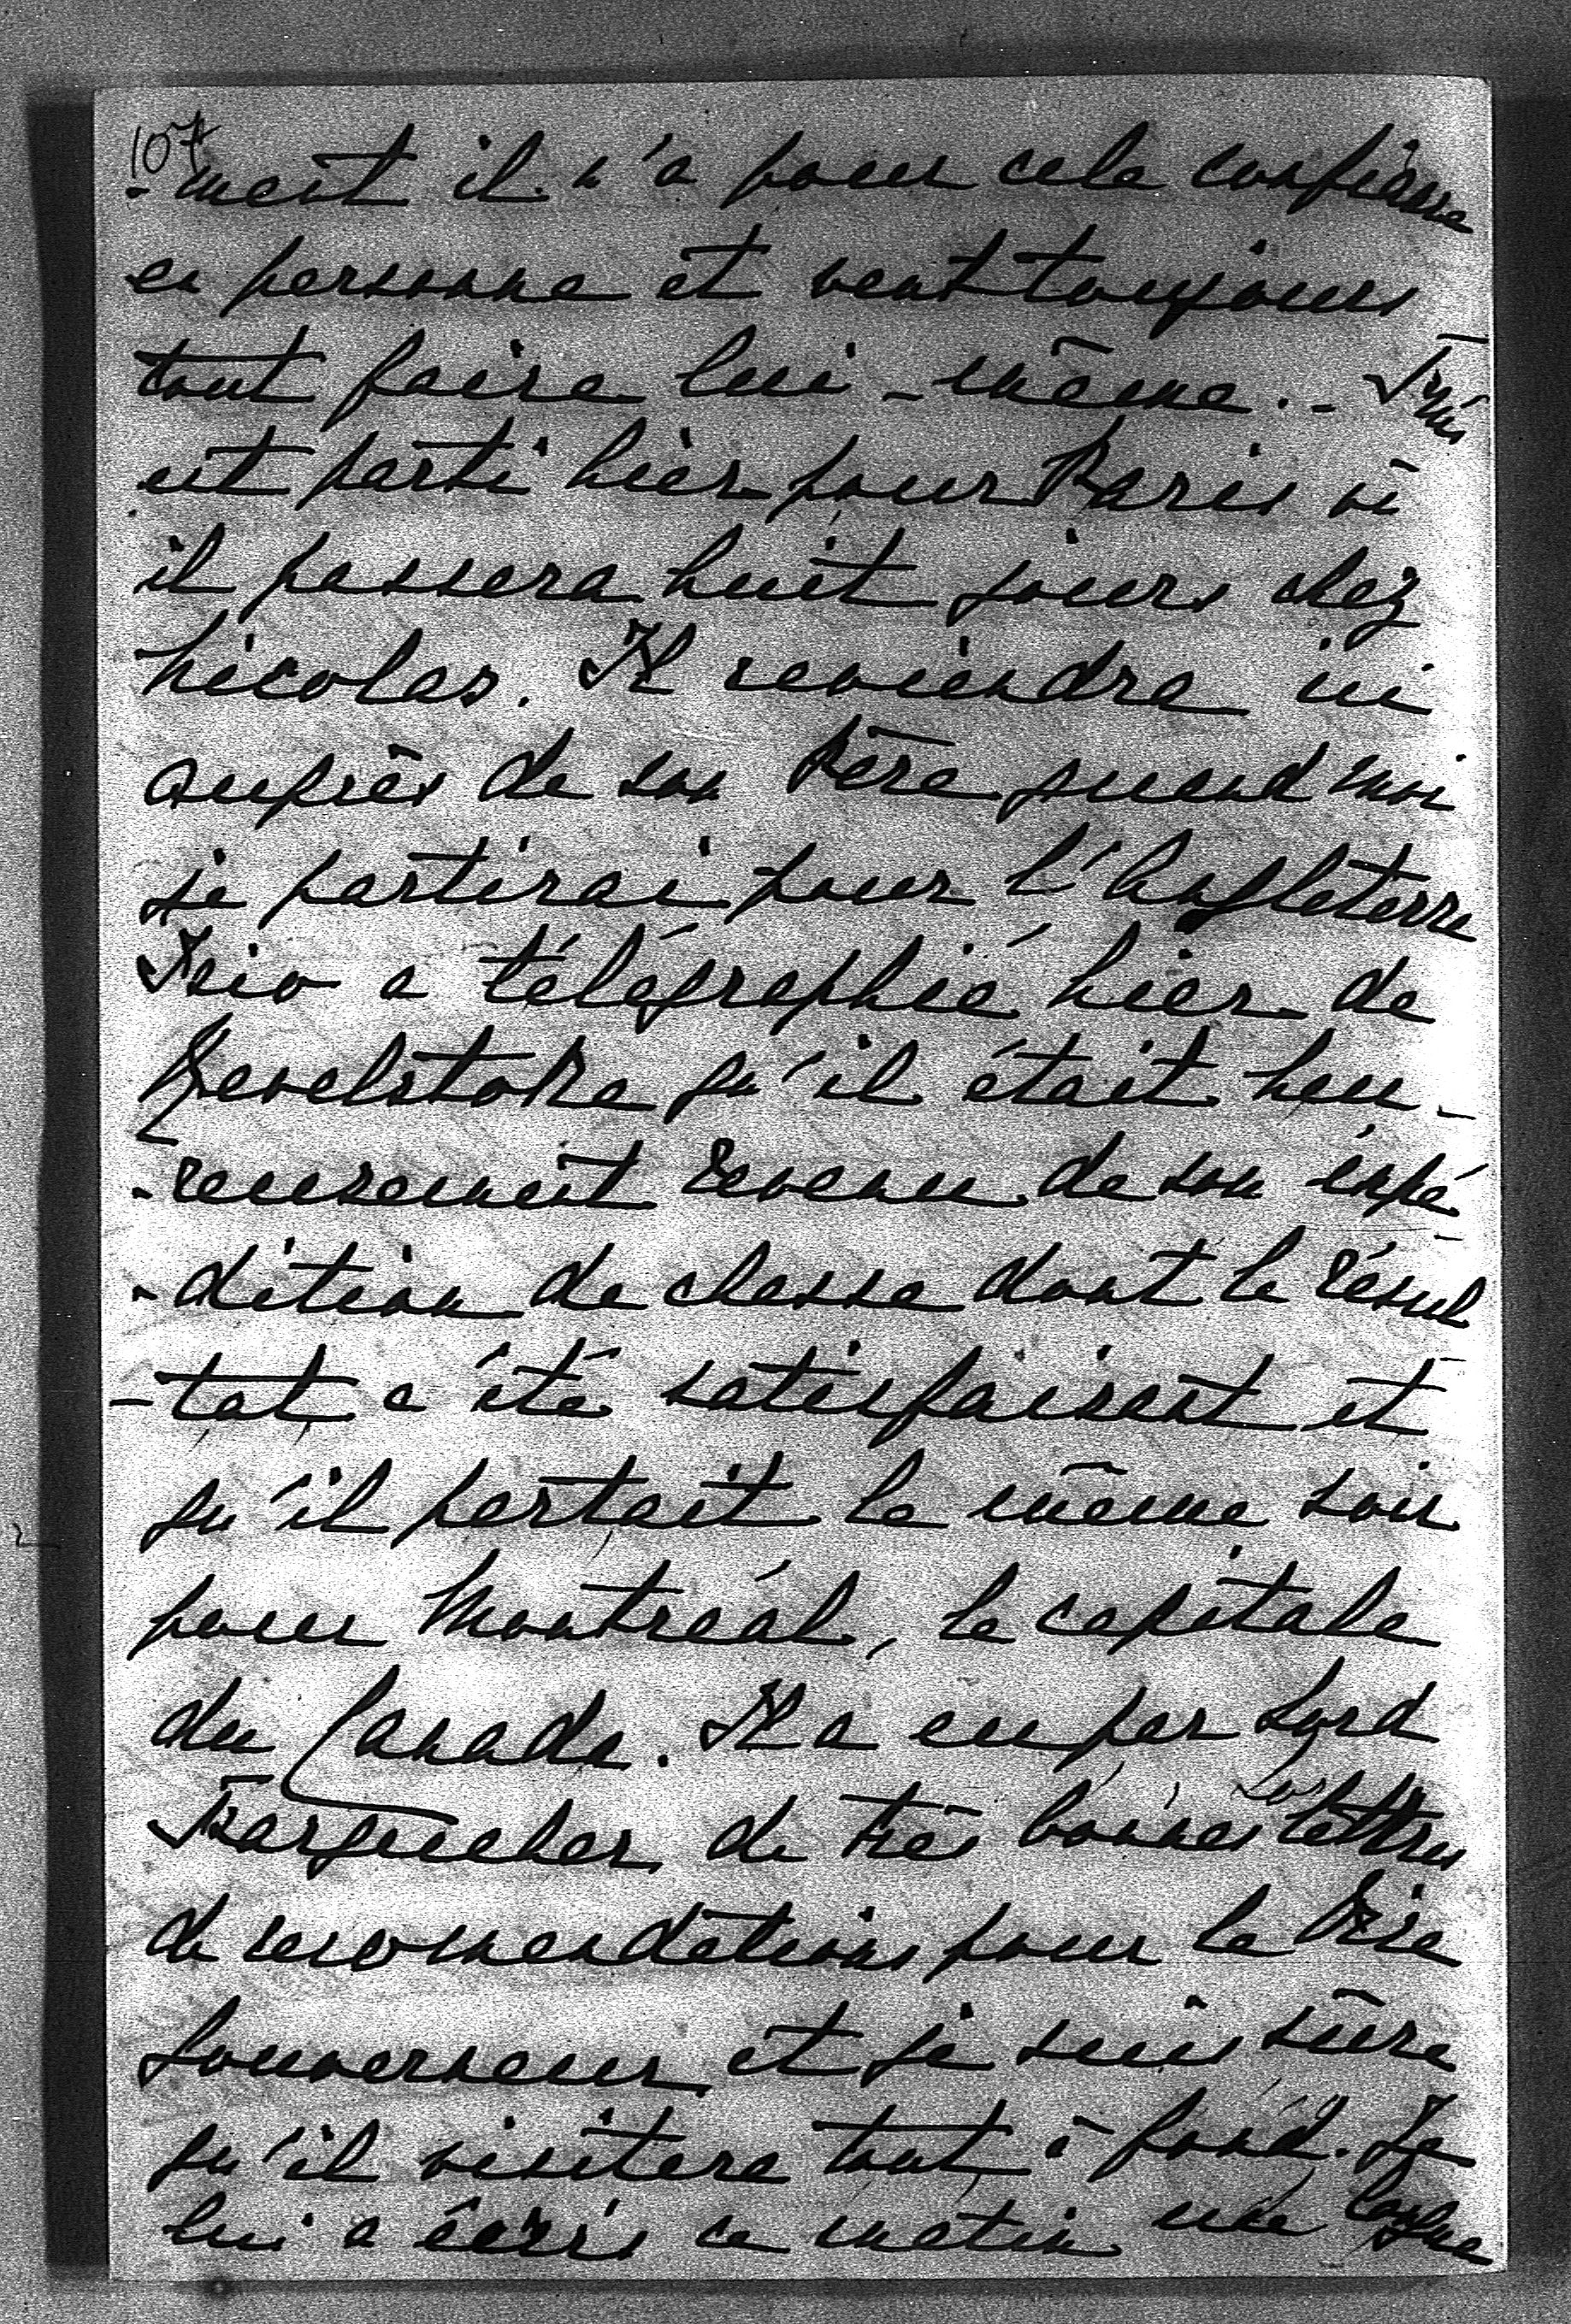 107
-ment il n'a pour cela confiance
en personne et veut toujours
tout faire lui-même.-
est parti hier pour Paris où
il passera huit jours chez
Nicolas. Il reviendra ici
auprès de son Père quand moi
je partirai pour l'Angleterre
a télégraphié hier de
Revelstoke qu'il était heu-
-reusement revenu de son expé
-dition de chasse dont le résul
-tat a été satisfaisant et
qu'il partait le même soir
pour Montréal, la capitale
du Canada. Il a eu par Lord
Farquehar de très bonnes lettres
de recomendations pour le Vice
Gouverneur et je suis sûre
qu'il visitera tout à fond. Je
lui a écris ce matin une longue